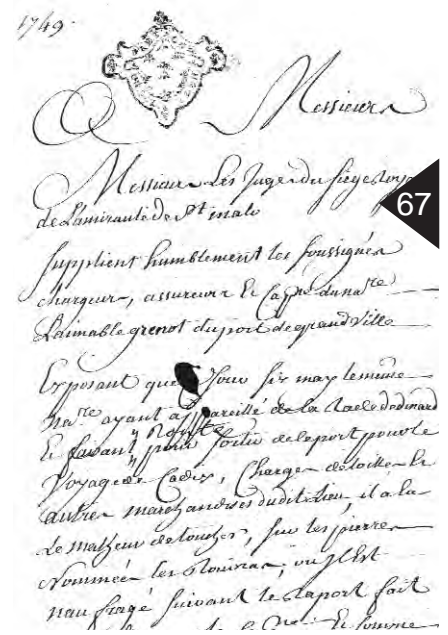 1749.
Messieurs
Messieurs Les Juges du siege
67
de Lamirauté de St malo
supplient humblement les soussignés
chargeurs, assureurs Et Cap.ne du na.re
Laimable grenot du port de grandville
Exposant que Jour six may le meme
na.re ayant appareillé de la Rade de dinard
Et pour sortir de le port pour le
Voyage de Cadix, Chargé de toille Et
autres marchandises dudit lieu, il a Eu
Le malheur de toucher, sur les pierres
Nommée les ou Il Est
naufragé suivant le raport fait
Et comme